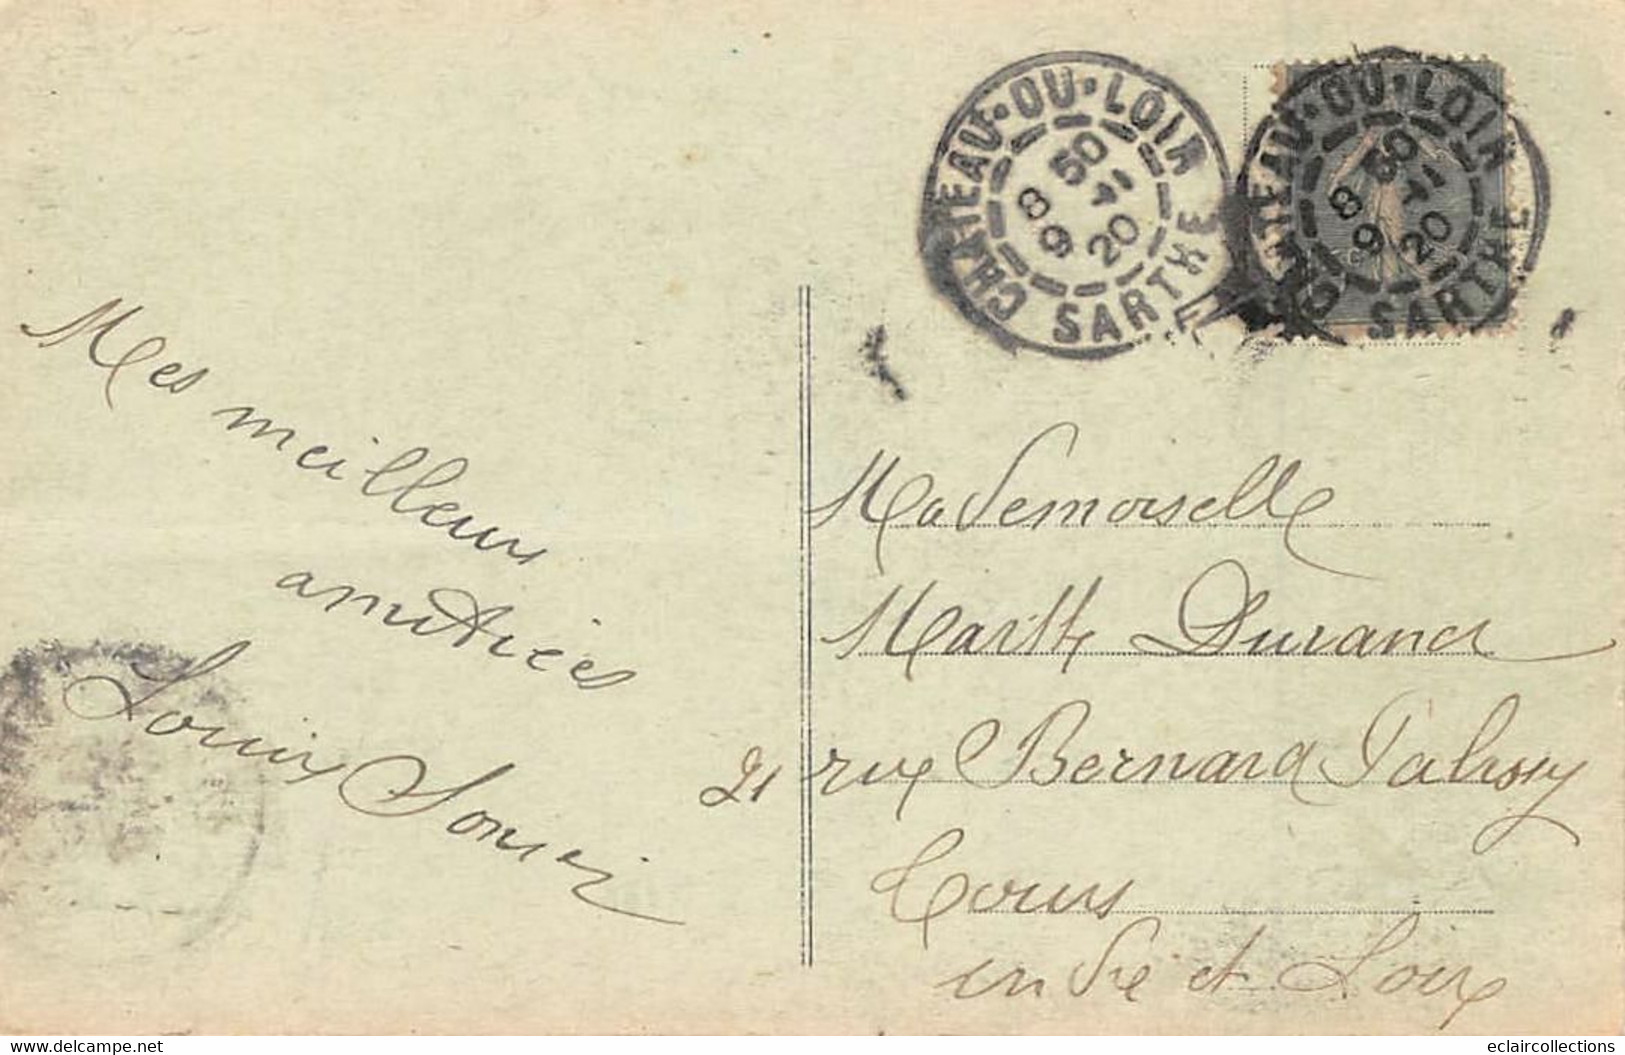 CHATEAU-DU-LOIR
8 50
9 11
20
SARTHE
CHATEAU-DU-LOIR
8 50
9 11
20
SARTHE
Mes meilleurs
amitiées
Louis
Mademoiselle
Marthe Durand
21 rue Bernard Palissy
Tours
indre et Loire
www.delcampe.net
eclaircollections